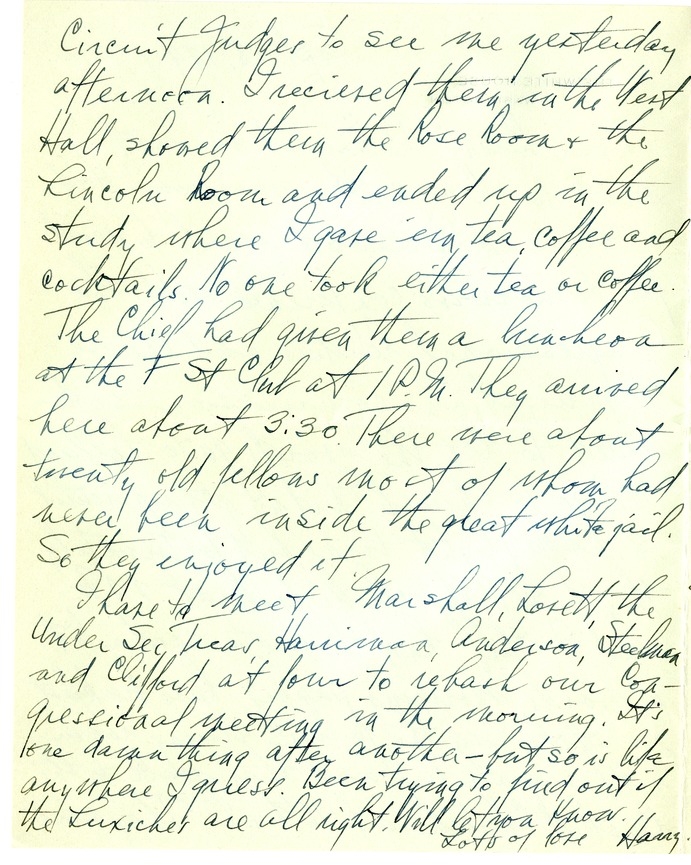 Circuit Judges to see me yesterday
afternoon. I recieved them in the West
Hall, showed them the Rose Room & the
Lincoln Room and ended up in the
study where I gave 'em tea, coffee and
cocktails. No one took either tea or coffee.
The Chief had given them a luncheon
at the F St Club at 1 P.M. They arrived
here about 3:30. There were about
twenty old fellows most of whom had
never been inside the great white jail.
So they enjoyed it.
I have to meet Marshall, Lovett, the
Under Sec, Treas, Harriman, Anderson, Steelman
and Clifford at four to rehash our Con-
gressional meeting in the morning. It's
one damn thing after another - but so is life
anywhere I guess. Been trying to find out if
the Luxiches are all right. Will let you know.
Lots of love Harry.